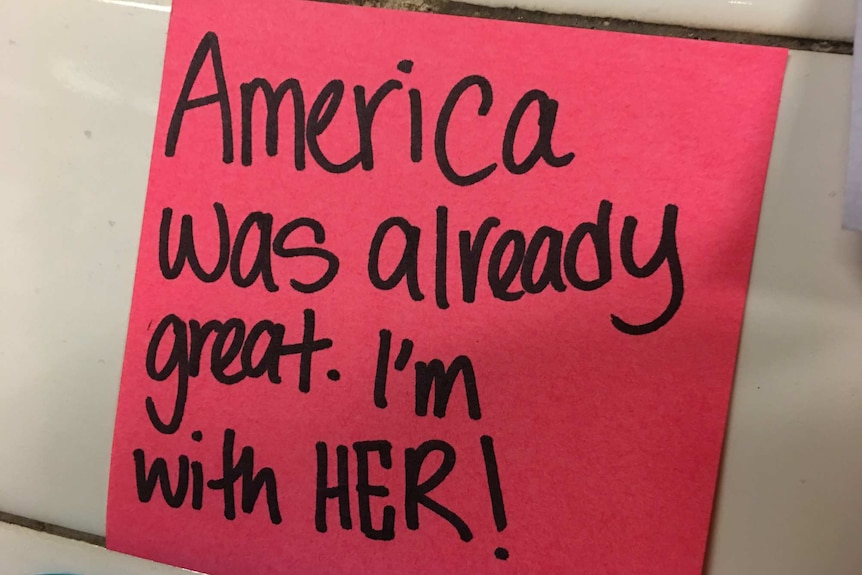 America
was already
great. I'm
with HER!